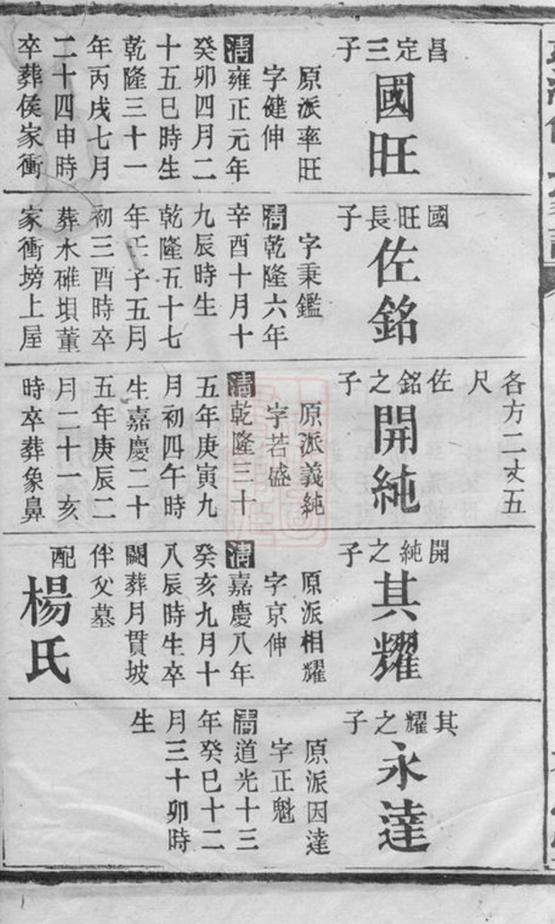 昌定三子
國旺
原派率旺
字健伸
清雍正元年
癸卯四月二
十五巳時生
乾隆三十一
年丙戌七月
二十四申時
卒葬侯家衝
國旺長子
佐銘
字秉鑑
清乾隆六年
辛酉十月十
九辰時生
乾隆五十七
年壬子五月
初三酉時卒
葬水碓垻董
家衝塝上屋
各方二丈五
尺
佐銘之子
開純
原派義純
字若盛
清乾隆三十
五年庚寅九
月初四午時
生嘉慶二十
五年庚辰二
月二十一亥
時卒葬象鼻
開純之子
其耀
原派相耀
字京伸
清嘉慶八年
癸亥九月十
八辰時生卒
闕葬月貫坡
伴父墓
配楊氏
其耀之子
永達
原派因達
字正魁
清道光十三
年癸巳十二
月三十卯時
生